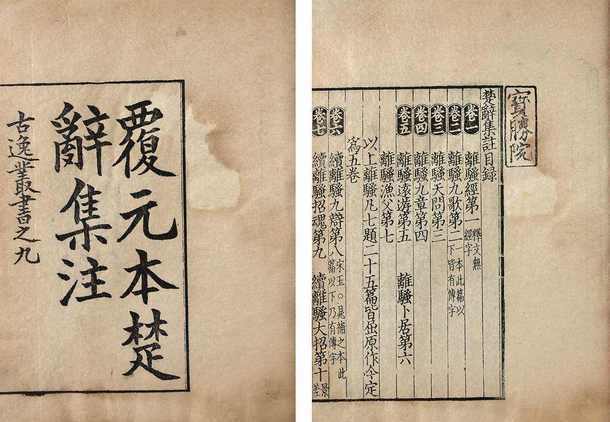 覆元本楚
辭集注
古逸叢書之九
寶勝院
楚辭集註目錄
卷一 離騷經第一 釋文無經字
卷二 離騷九歌第二 本此篇以下皆有傳字
卷三 離騷天問第三
卷四 離騷九章第四
卷五 離騷遠遊第五 離騷卜居第六
離騷漁父第七
以上離騷凡七題二十五篇皆屈原作今定
為五卷
卷六 續離騷九辯第八 宋玉○晁補之本此篇以下乃有傳字
卷七 續離騷招魂第九 續離騷大招第十 景差